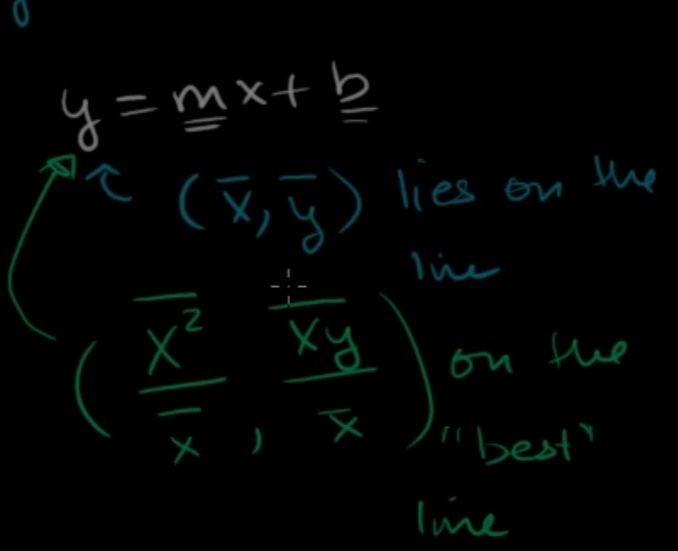 y = mx + b
(x̅, y̅) lies on the
line
(x²̅ / x̅ , x̅y̅ / x̅) on the
"best"
line